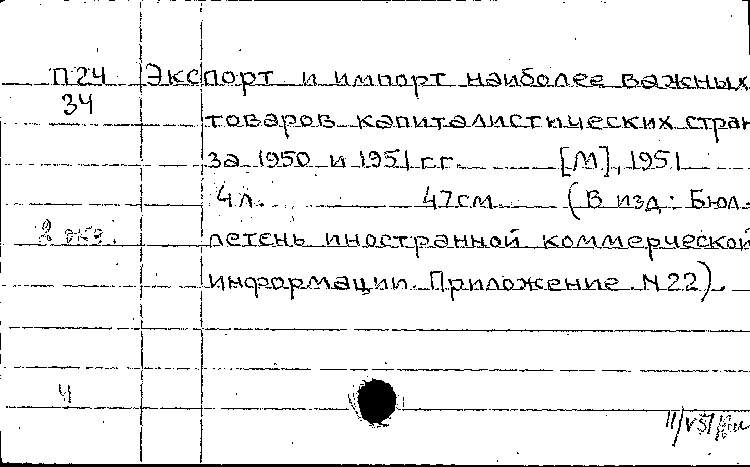 П24 Экспорт и импорт наиболее важных
34
товаров капиталистических стран
за 1950 и 1951 гг. [М], 1951
4 л. 47 см (В изд: Бюл-
2 экз. летень иностранной коммерческой
информации. Приложение N 22).
4
11/V 51